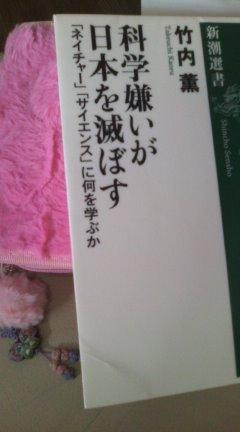 新潮選書
Shincho Sensho
竹内 薫
Takeuchi Kaoru
科学嫌いが
日本を滅ぼす
「ネイチャー」「サイエンス」に何を学ぶか